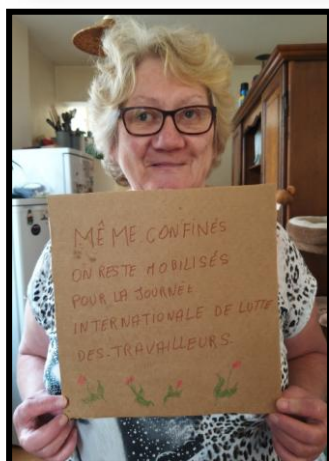 MÊME CONFINÉS
ON RESTE MOBILISÉS
POUR LA JOURNÉE
INTERNATIONALE DE LUTTE
DES-TRAVAILLEURS-